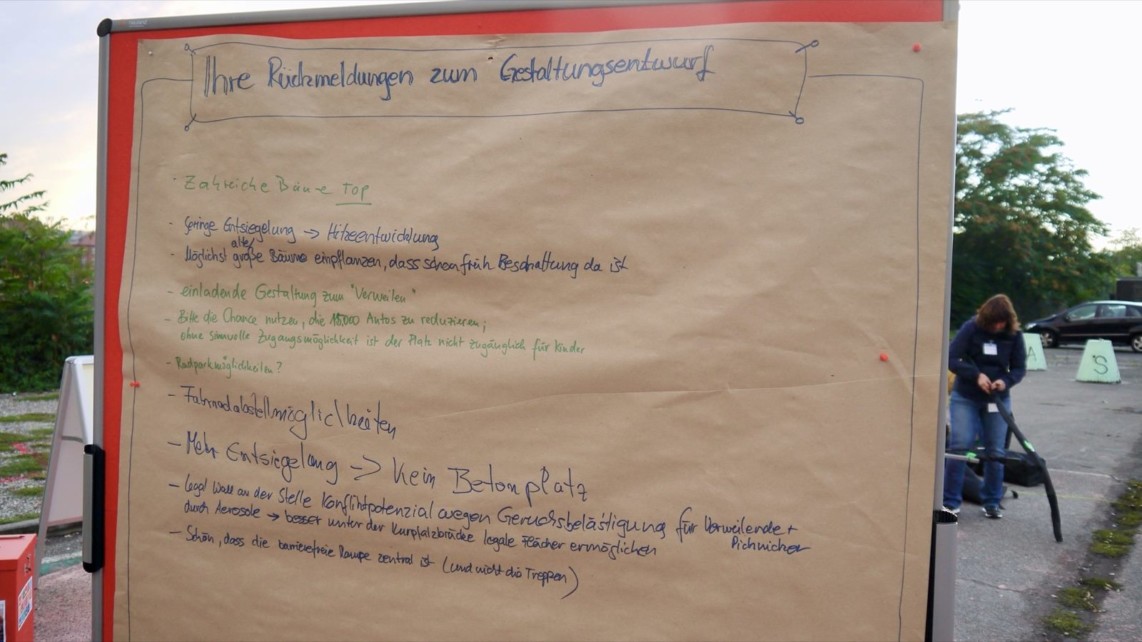 Ihre Rückmeldungen zum Gestaltungsentwurf
- Zahlreiche Bäume Top
- Geringe Entsiegelung → Hitzeentwicklung
alte/
- Möglichst große Bäume einpflanzen, dass schon früh Beschattung da ist
- einladende Gestaltung zum "Verweilen"
- Bitte die Chance nutzen, die 15.000 Autos zu reduzieren;
ohne sinnvolle Zugangsmöglichkeit ist der Platz nicht zugänglich für Kinder
- Radparkmöglichkeiten?
- Fahrradabstellmöglichkeiten
- Mehr Entsiegelung -> Kein Betonplatz
- Legal Wall an der Stelle Konfliktpotenzial wegen Geruchsbelästigung für Verweilende +
durch Aerosole → besser unter der Kurpfalzbrücke legale Flächen ermöglichen Picknicker
- Schön, dass die barrierefreie Rampe zentral ist (und nicht die Treppen)
A
S